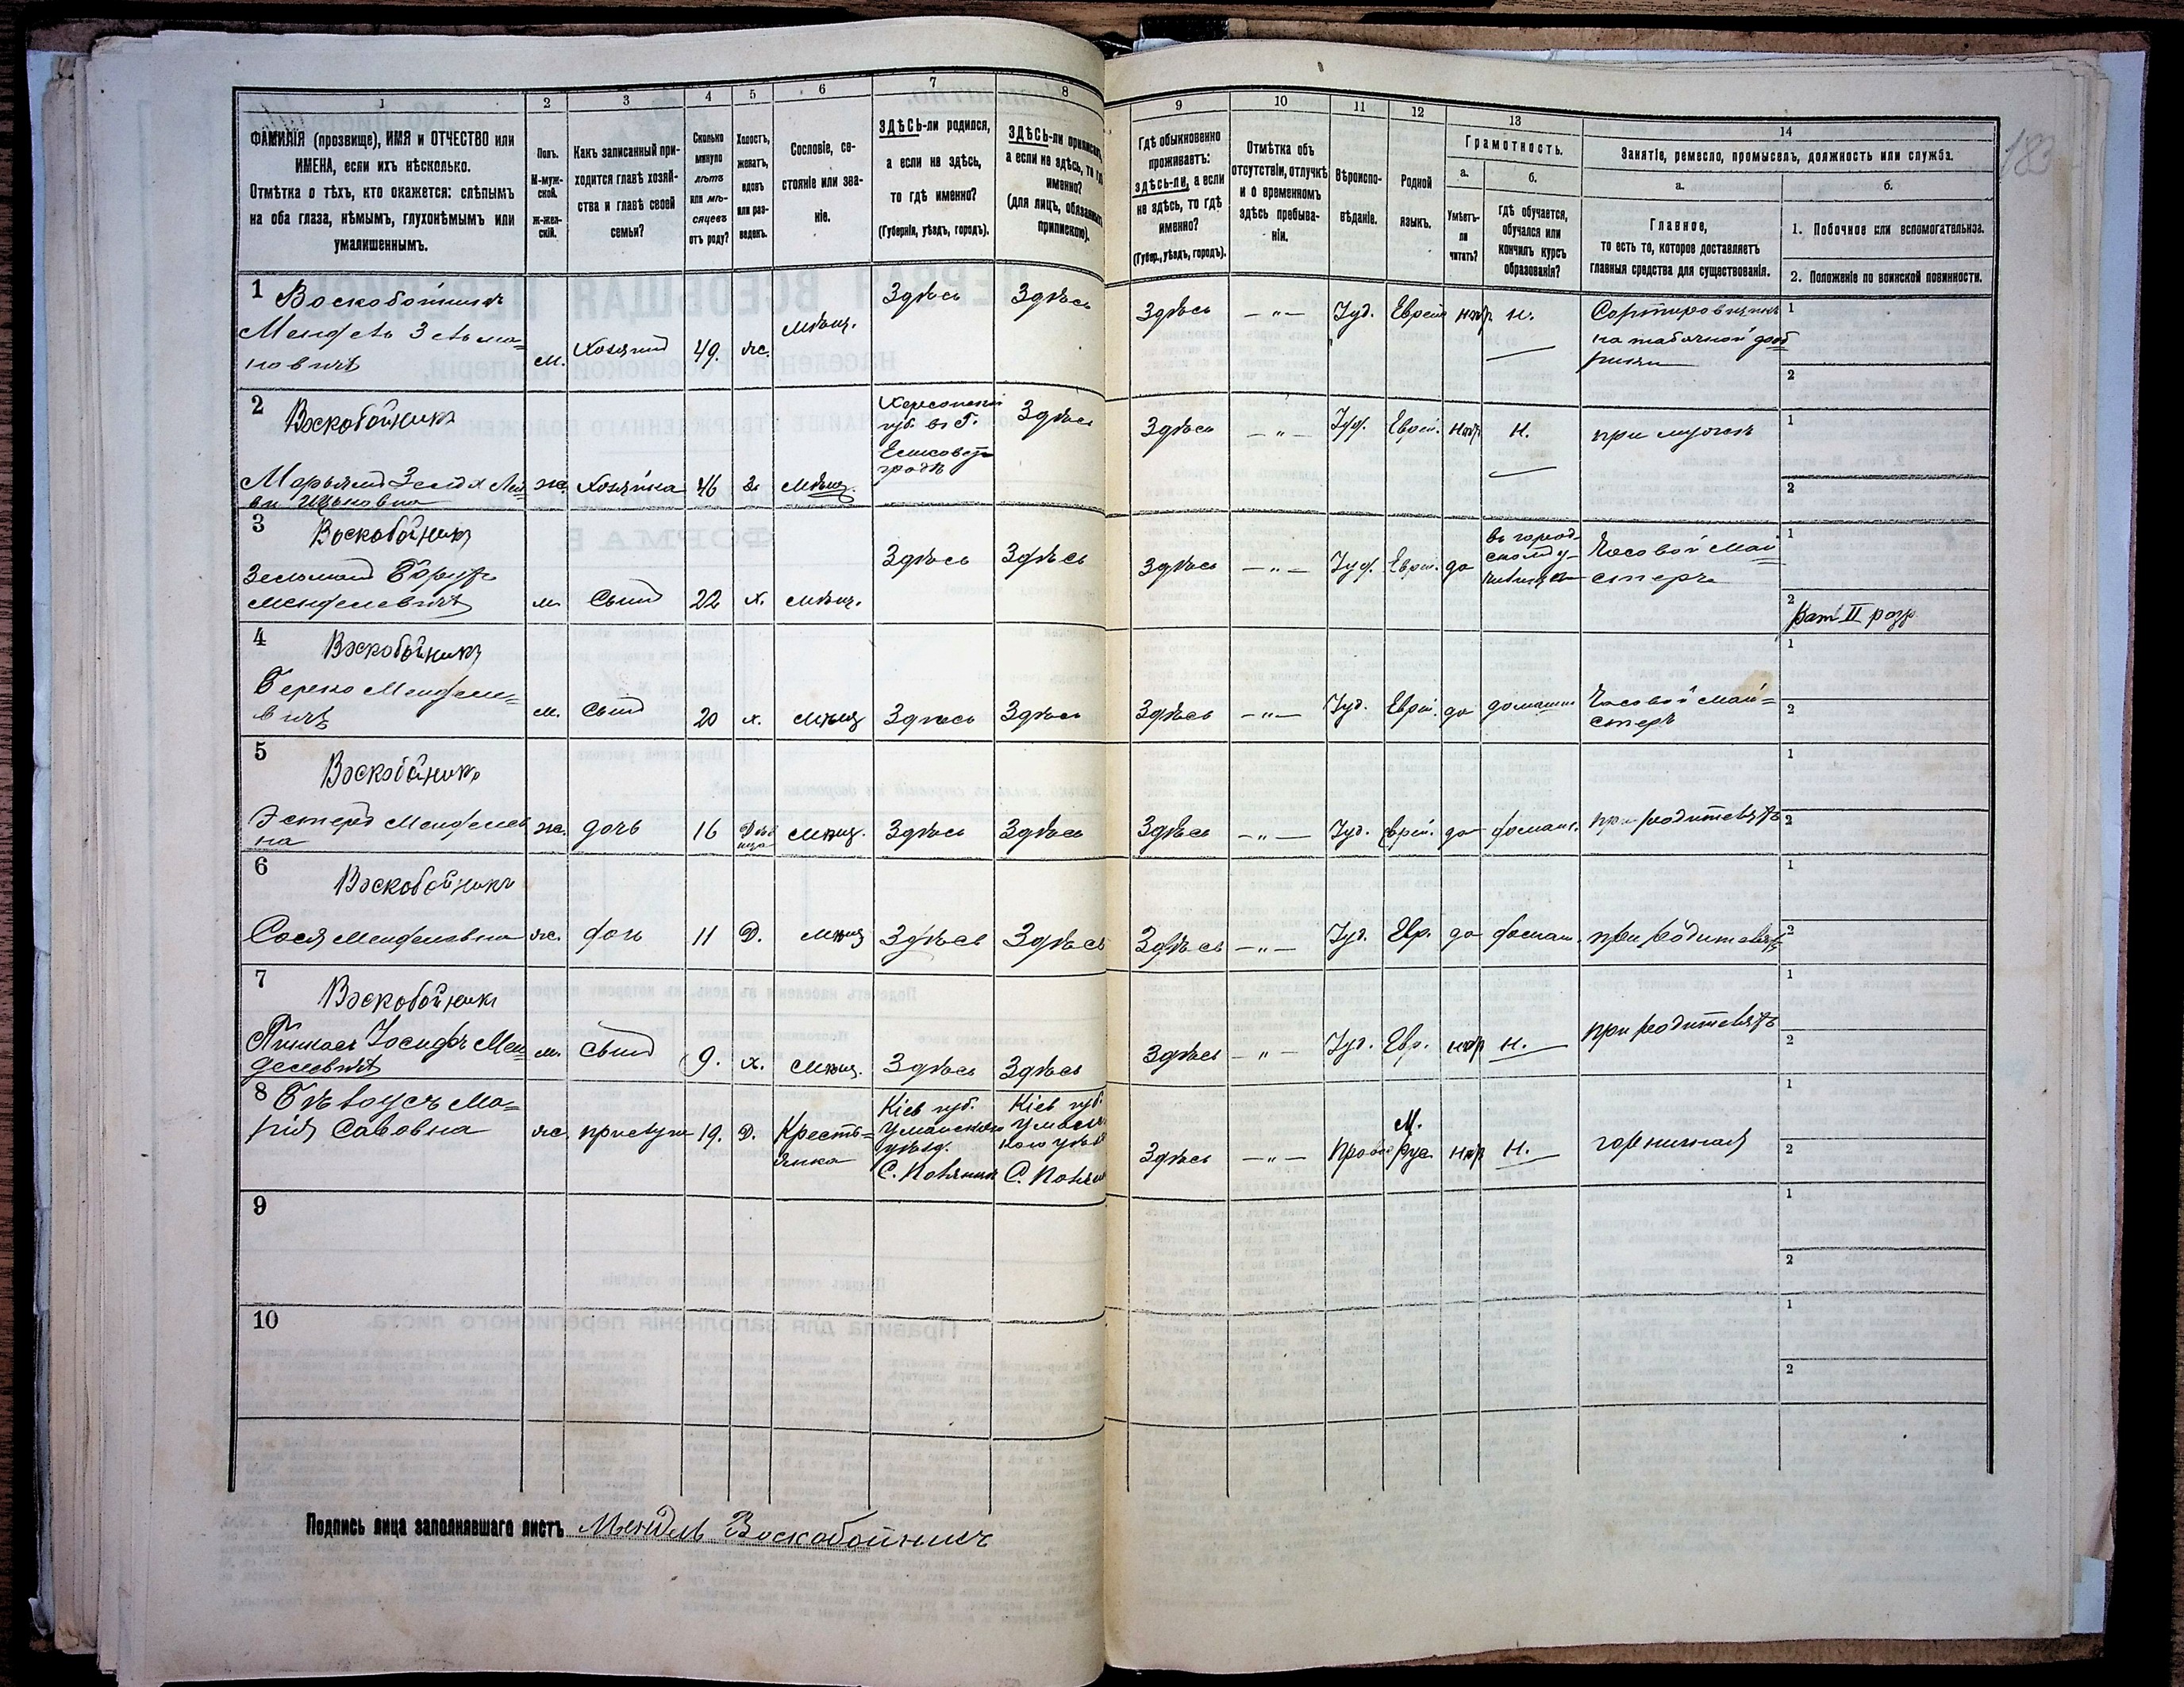 1
2
3
4
5
6
7
8
ФАМИЛІЯ (прозвище), ИМЯ и ОТЧЕСТВО или
ИМЕНА, если ихъ нѣсколько.
Отмѣтка о тѣхъ, кто окажется: слѣпымъ
на оба глаза, нѣмымъ, глухонѣмымъ или
умалишеннымъ.
Полъ.
М-муж-
ской.
ж-жен-
скій.
Какъ записанный при-
ходится главѣ хозяй-
ства и главѣ своей
семьи?
Сколько
минуло
лѣтъ
или мѣ-
сяцевъ
отъ роду?
Холостъ,
женатъ,
вдовъ
или раз-
веденъ.
Сословіе, со-
стояніе или зва-
ніе.
ЗДѢСЬ-ли родился,
а если не здѣсь,
то гдѣ именно?
(Губернія, уѣздъ, городъ).
ЗДѢСЬ-ли приписанъ,
а если не здѣсь, то гдѣ
именно?
(для лицъ, обязанныхъ
припискою).
9
10
11
12
13
14
Гдѣ обыкновенно
проживаетъ:
здѣсь-ли, а если
не здѣсь, то гдѣ
именно?
(Губер., уѣздъ, городъ).
Отмѣтка объ
отсутствіи, отлучкѣ
и о временномъ
здѣсь пребыва-
ніи.
Вѣроиспо-
вѣданіе.
Родной
языкъ.
Грамотность.
а.
Умѣетъ-
ли
читать?
б.
Гдѣ обучается,
обучался или
кончилъ курсъ
образованія?
Занятіе, ремесло, промыселъ, должность или служба.
а.
Главное,
то есть то, которое доставляетъ
главныя средства для существованія.
б.
1. Побочное или вспомогательное.
2. Положеніе по воинской повинности.
183
1 Воскобойникъ
Мендель Зельма=
новичъ
м.
Хозяинъ
49.
ж.
мѣщ.
Здѣсь
Здѣсь
Здѣсь
— „ —
Іуд.
Еврей
н.
Сортировщикъ
на табачной фаб
рикѣ
1
2
2 Воскобойникъ
ж.
Хозяйка
46
з.
Мѣщ.
Херсонской
губ. въ Г.
Елисавет
градѣ
Здѣсь
Здѣсь
— „ —
Іуд.
Еврей.
н.
при мужѣ
1
2
3 Воскобойникъ
Зельманъ
Менделевичъ
м.
Сынъ
22
х.
мѣщ.
Здѣсь
Здѣсь
Здѣсь
— „ —
Іуд.
Еврей.
да
въ город
скомъ у-
чилищѣ
Часовой Май
стеръ
1
2
Рат II разр
4 Воскобойникъ
Берко Менделе=
вичъ
м.
Сынъ
20
х.
мѣщ
Здѣсь
Здѣсь
Здѣсь
— „ —
Іуд.
Еврей.
да
домашн
Часовой май=
стеръ
1
2
5
Воскобойникъ
Эстеръ Менделев
на
ж.
дочь
16
Дѣв
ица
мѣщ.
Здѣсь
Здѣсь
Здѣсь
— „ —
Іуд.
Еврей.
да
домашн.
при родителяхъ
1
2
6
Воскобойникъ
Сося Менделевна
ж.
дочь
11
Д.
мѣщ
Здѣсь
Здѣсь
Здѣсь
— „ —
Іуд.
Евр.
да
домаш.
при родителяхъ
1
2
7
Воскобойникъ
Пинхасъ Іосифъ Мен
делевичъ
м.
Сынъ
9.
х.
мѣщ.
Здѣсь
Здѣсь
Здѣсь
— „ —
Іуд.
Евр.
н.
при родителяхъ
1
2
8 Бѣлоусъ Ма=
рія Савовна
ж.
прислуга
19.
Д.
Кресть=
янка
Кіев губ.
Уманскаго
уѣзд.
Кіев губ.
Здѣсь
— „ —
Правос
М.
Рус.
н.
горничная
1
2
9
1
2
10
1
2
Подпись лица заполнявшаго листъ Мендль Воскобойникъ